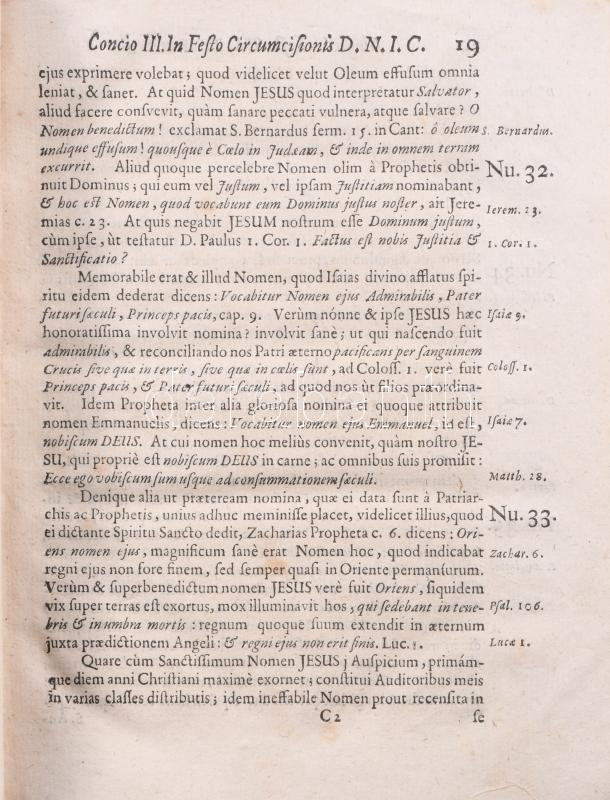 Concio III. In Festo Circumcisionis D. N. I. C. 19
ejus exprimere volebat; quod videlicet velut Oleum effusum omnia
leniat, & sanet. At quid Nomen JESUS quod interpretatur Salvator,
aliud facere consvevit, quàm sanare peccati vulnera, atque salvare? O
Nomen benedictum! exclamat S. Bernardus serm. 15. in Cant: ô oleum S. Bernardus.
undique effusum! quousque è Cœlo in Judæam, & inde in omnem terram
excurrit. Aliud quoque percelebre Nomen olim à Prophetis obti- Nu. 32.
nuit Dominus; qui eum vel Justum, vel ipsam Justitiam nominabant,
& hoc est Nomen, quod vocabunt eum Dominus justus noster, ait Jere- Ierem. 23.
mias c. 23. At quis negabit JESUM nostrum esse Dominum justum,
cùm ipse, ùt testatur D. Paulus 1. Cor. 1. Factus est nobis Justitia & 1. Cor. 1.
Sanctificatio?
Memorabile erat & illud Nomen, quod Isaias divino afflatus spi-
ritu eidem dederat dicens: Vocabitur Nomen ejus Admirabilis, Pater
futuri sæculi, Princeps pacis, cap. 9. Verùm nónne & ipse JESUS hæc Isaiæ 9.
honoratissima involvit nomina? involvit sanè; ut qui nascendo fuit
admirabilis, & reconciliando nos Patri æterno pacificans per sanguinem
Crucis sive quæ in terris, sive quæ in cœlis sunt, ad Coloss. 1. verè fuit Coloss. 1.
Princeps pacis, & Pater futuri sæculi, ad quod nos ùt filios præordina-
vit. Idem Propheta inter alia gloriosa nomina ei quoque attribuit
nomen Emmanuelis, dicens: Vocabitur nomen ejus Emmanuel, id est, Isaiæ 7.
nobiscum DEUS. At cui nomen hoc meliùs convenit, quàm nostro JE-
SU, qui propriè est nobiscum DEUS in carne; ac omnibus suis promisit:
Ecce ego vobiscum sum usque ad consummationem sæculi. Matth. 28.
Denique alia ut præteream nomina, quæ ei data sunt à Patriar-
chis ac Prophetis, unius adhuc meminisse placet, videlicet illius, quod Nu. 33.
ei dictante Spiritu Sancto dedit, Zacharias Propheta c. 6. dicens: Ori-
ens nomen ejus, magnificum sanè erat Nomen hoc, quod indicabat Zachar. 6.
regni ejus non fore finem, sed semper quasi in Oriente permansurum.
Verùm & superbenedictum nomen JESUS verè fuit Oriens, siquidem
vix super terras est exortus, mox illuminavit hos, qui sedebant in tene- Psal. 106.
bris & in umbra mortis: regnum quoque suum extendit in æternum
juxta prædictionem Angeli: & regni ejus non erit finis. Luc. 1. Lucæ 1.
Quare cùm Sanctissimum Nomen JESUS j Auspicium, primám-
que diem anni Christiani maximè exornet; constitui Auditoribus meis
in varias classes distributis; idem ineffabile Nomen prout recensita in
C 2 se